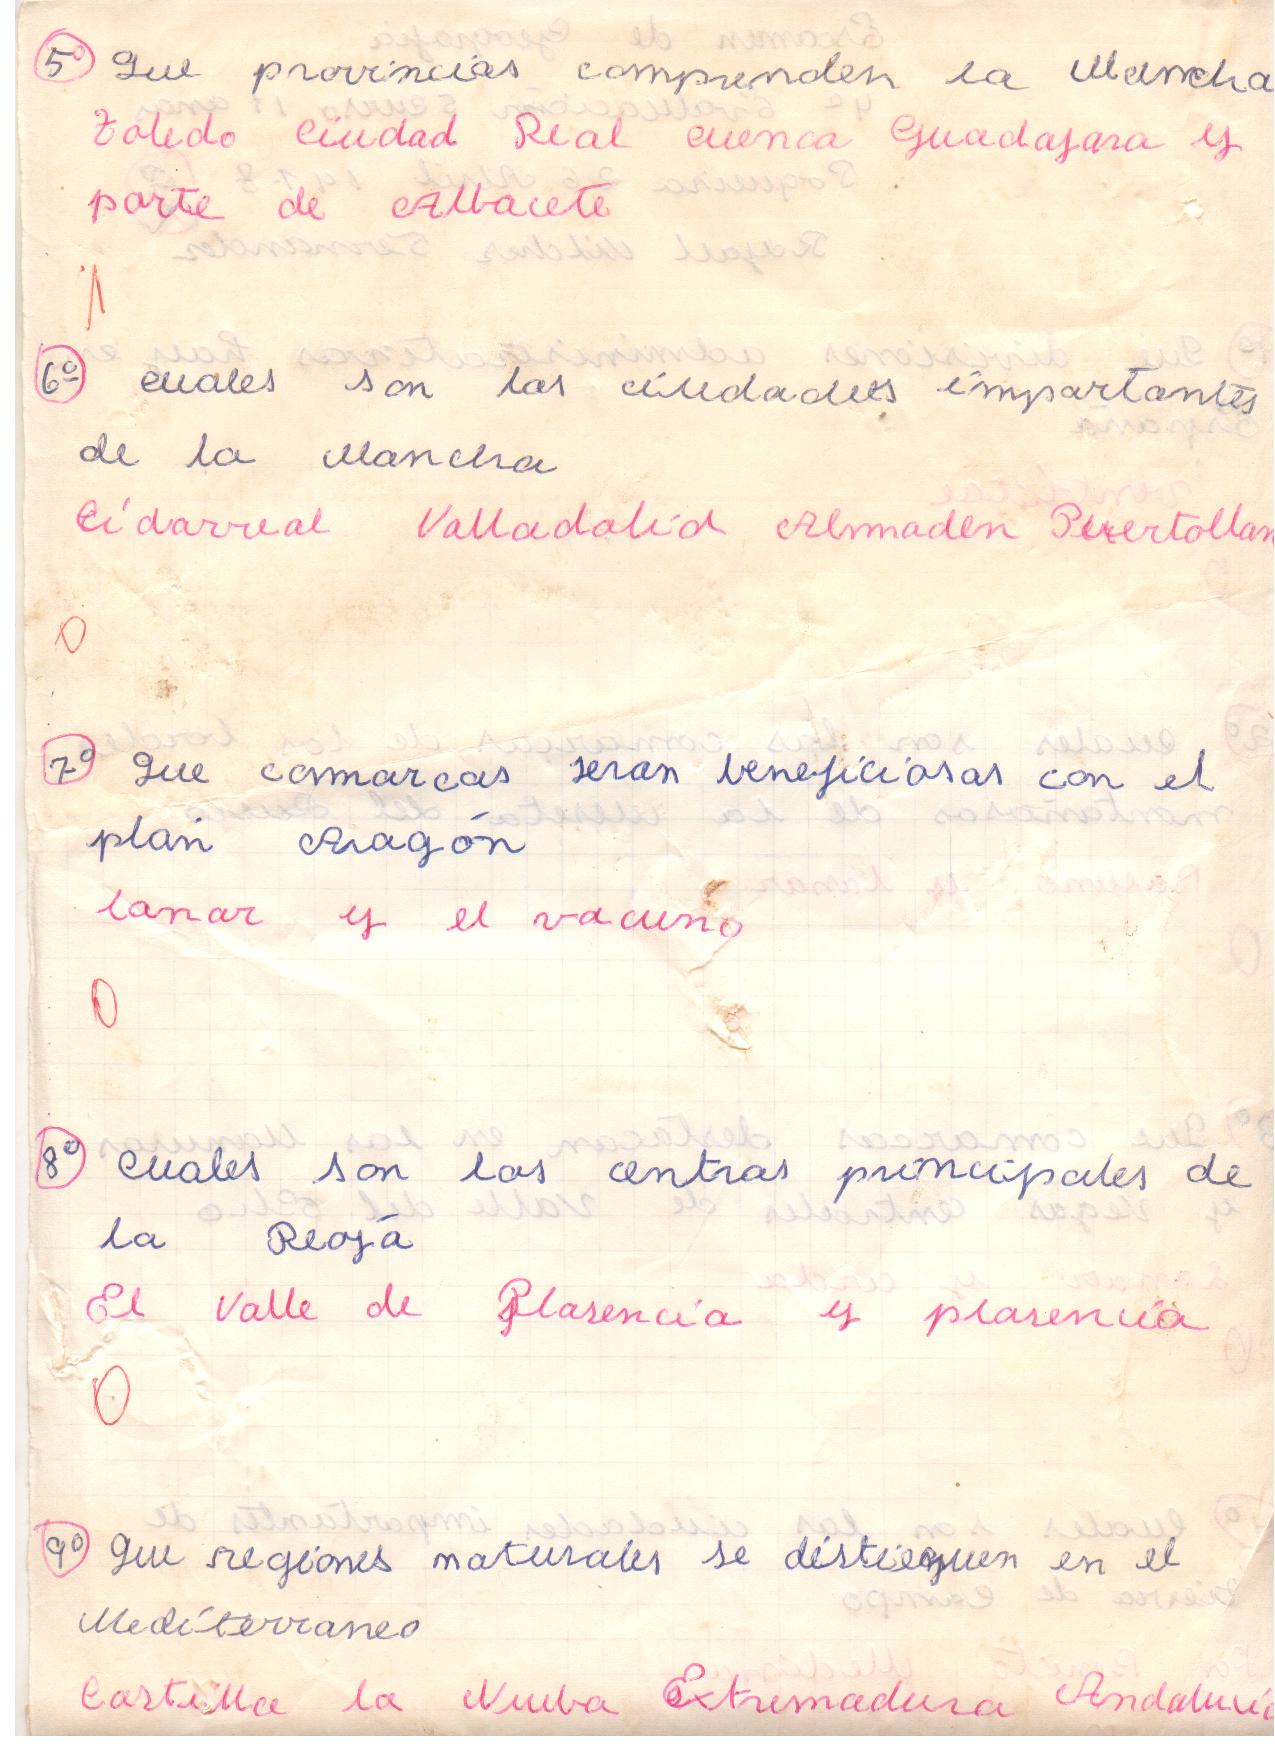 5º Que provincias comprenden la Mancha
Toledo Ciudad Real cuenca Guadajara y
parte de Albacete
1
6º cuales son las ciudades importantes
de la Mancha
Cidarreal Valladolid Almaden Puertollan
0
7º Que comarcas seran beneficiosas con el
plan Aragón
lanar y el vacuno
0
8º cuales son los centros principales de
la Reojá
El Valle de Plasencia y plasencia
0
9º Que regiones naturales se distieguen en el
Mediterraneo
Castilla la Nueba Extremadura Andalucia